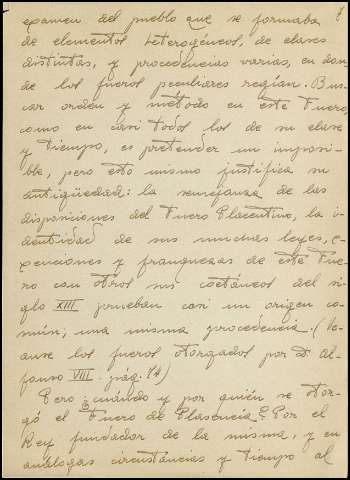 examen del pueblo que se formaba
de elementos heterogéneos, de clases
distintas, y procedencias varias, en don
de los fueros peculiares regían. Bus-
car orden y método en este Fuero,
como en casi todos los de su clase
y tiempo, es pretender un imposi-
ble, pero esto mismo justifica su
antigüedad: la semejanza de las
disposiciones del Fuero Placentino, la i-
dentidad de sus muchas leyes, e-
xenciones y franquezas de este Fue-
ro con otros sus coetáneos del si-
glo XIII prueban casi un origen co-
mún, una misma procedencia. (Ve-
anse los fueros otorgados por D. Al-
fonso VIII. pág. 14)
Pero ¿cuándo y por quién se otor-
gó el Fuero de Plasencia? Por el
Rey fundador de la misma, y en
análogas circunstancias y tiempo al